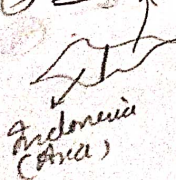 Indonesia
(Asia)